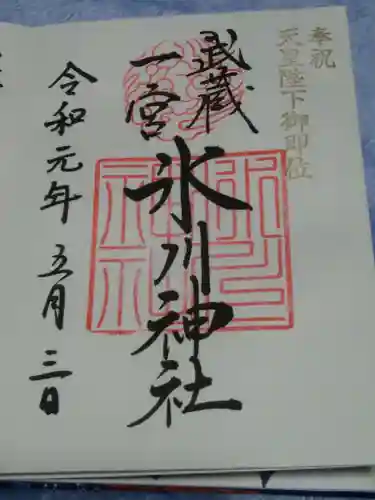 奉祝
天皇陛下御即位
武蔵
一宮
氷川神社
令和元年五月三日